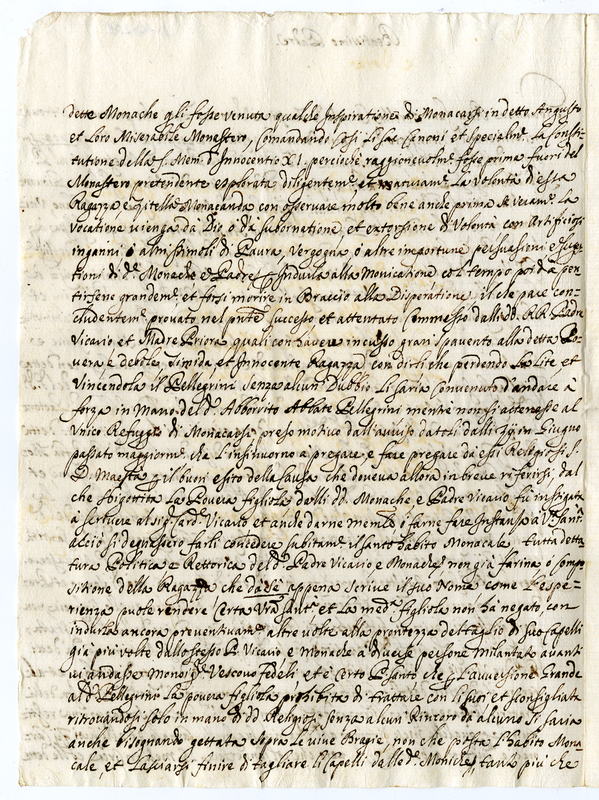 dette Monache gli fosse venuta qualche Inspiratione di Monacarsi in detto Angusto
et Loro Miserabile Monastero, Comandando Così Li Sac. Canoni et Specialm.te la Consti
tutione della S. Mem. d'Innocentio XI. perciochè raggionevolm.te fosse prima fuori del
Monastero pretendente esplorata diligentem.te et maturam.te La Volontà d'essa
Ragazza e Zitella Monacanda con osservare molto bene anche prima se veram.te La
Vocatione vienga da Dio, ò da subornatione, et extorsione di Volontà con Artificiosi
inganni ò almissimoli di Paura, Vergogna, ò altre importune persuasioni e
tioni di d.e Monache e Padre Indurla alla Monicatione col tempo poi da pen
tirsene grandem.te et forsi morire in Braccio alla Disperatione, il che pare con-
cludentem.te provato nel pnte successo et attentato Commesso dalli dd. RR. Padre
Vicario et Madre Priora quali con havere incusso gran spavento alla detta Po
vera e debole timida et Innocente Ragazza con dirli che perdendo La Lite et
Vincendola il Pellegrini Senza alcun Dubbio Li saria Convenuto d'andare à
forza in Mano del d. Abborrito Abbate Pellegrini mentre non si attenesse al
Unico Refuggio di Monacarsi preso motivo dall'auviso datosi dalli Giugno
passato maggiorm.te che L'insinuorno a pregare e fare pregare da essi Religiosi S.
D. Maestà p il buon esito della Causa che doveva allora in breve riferirsi, dal
che sbigottita La Povera figliola dalli dd. Monache e Padre Vicario fù instigata
à scrivere al sig. Card. Vicario et anche darne mem.le ò farne fare Instanza à V. Sant.à
acciò si degnassero farli concedere subitam.te il santo habito Monacale tutta detta
tura Politica e Rettorica del d. Padre Vicario e Monache non già farina ò compo
sitione della Ragazza che da sè appena scrive il suo Nome come L'espe-
rienza puole rendere Certa Vra Sant.à et La med. figliola non hà negato, con
indurla ancora preventivam.te altre volte alla prontezza del taglio di suoi Capelli
già più volte dallo stesso P. Vicario e Monache à diverse persone Militanto avanti
vi andasse Monsig. Vescovo Fedeli et è certo P. santo che p L'avversione Grande
al d. Pellegrino La povera figliola prohibita di trattare con li suoi et sconsigliata
ritrovandosi solo in mano di dd Religiosi senza alcun Rincoro da alcuno Si saria
anche bisognando gettata sopra Le vive Bragie, non che posta l'habito Mona
cale, et Lasciarsi finire di tagliare li Capelli dalle d. Moniche, tanto più che